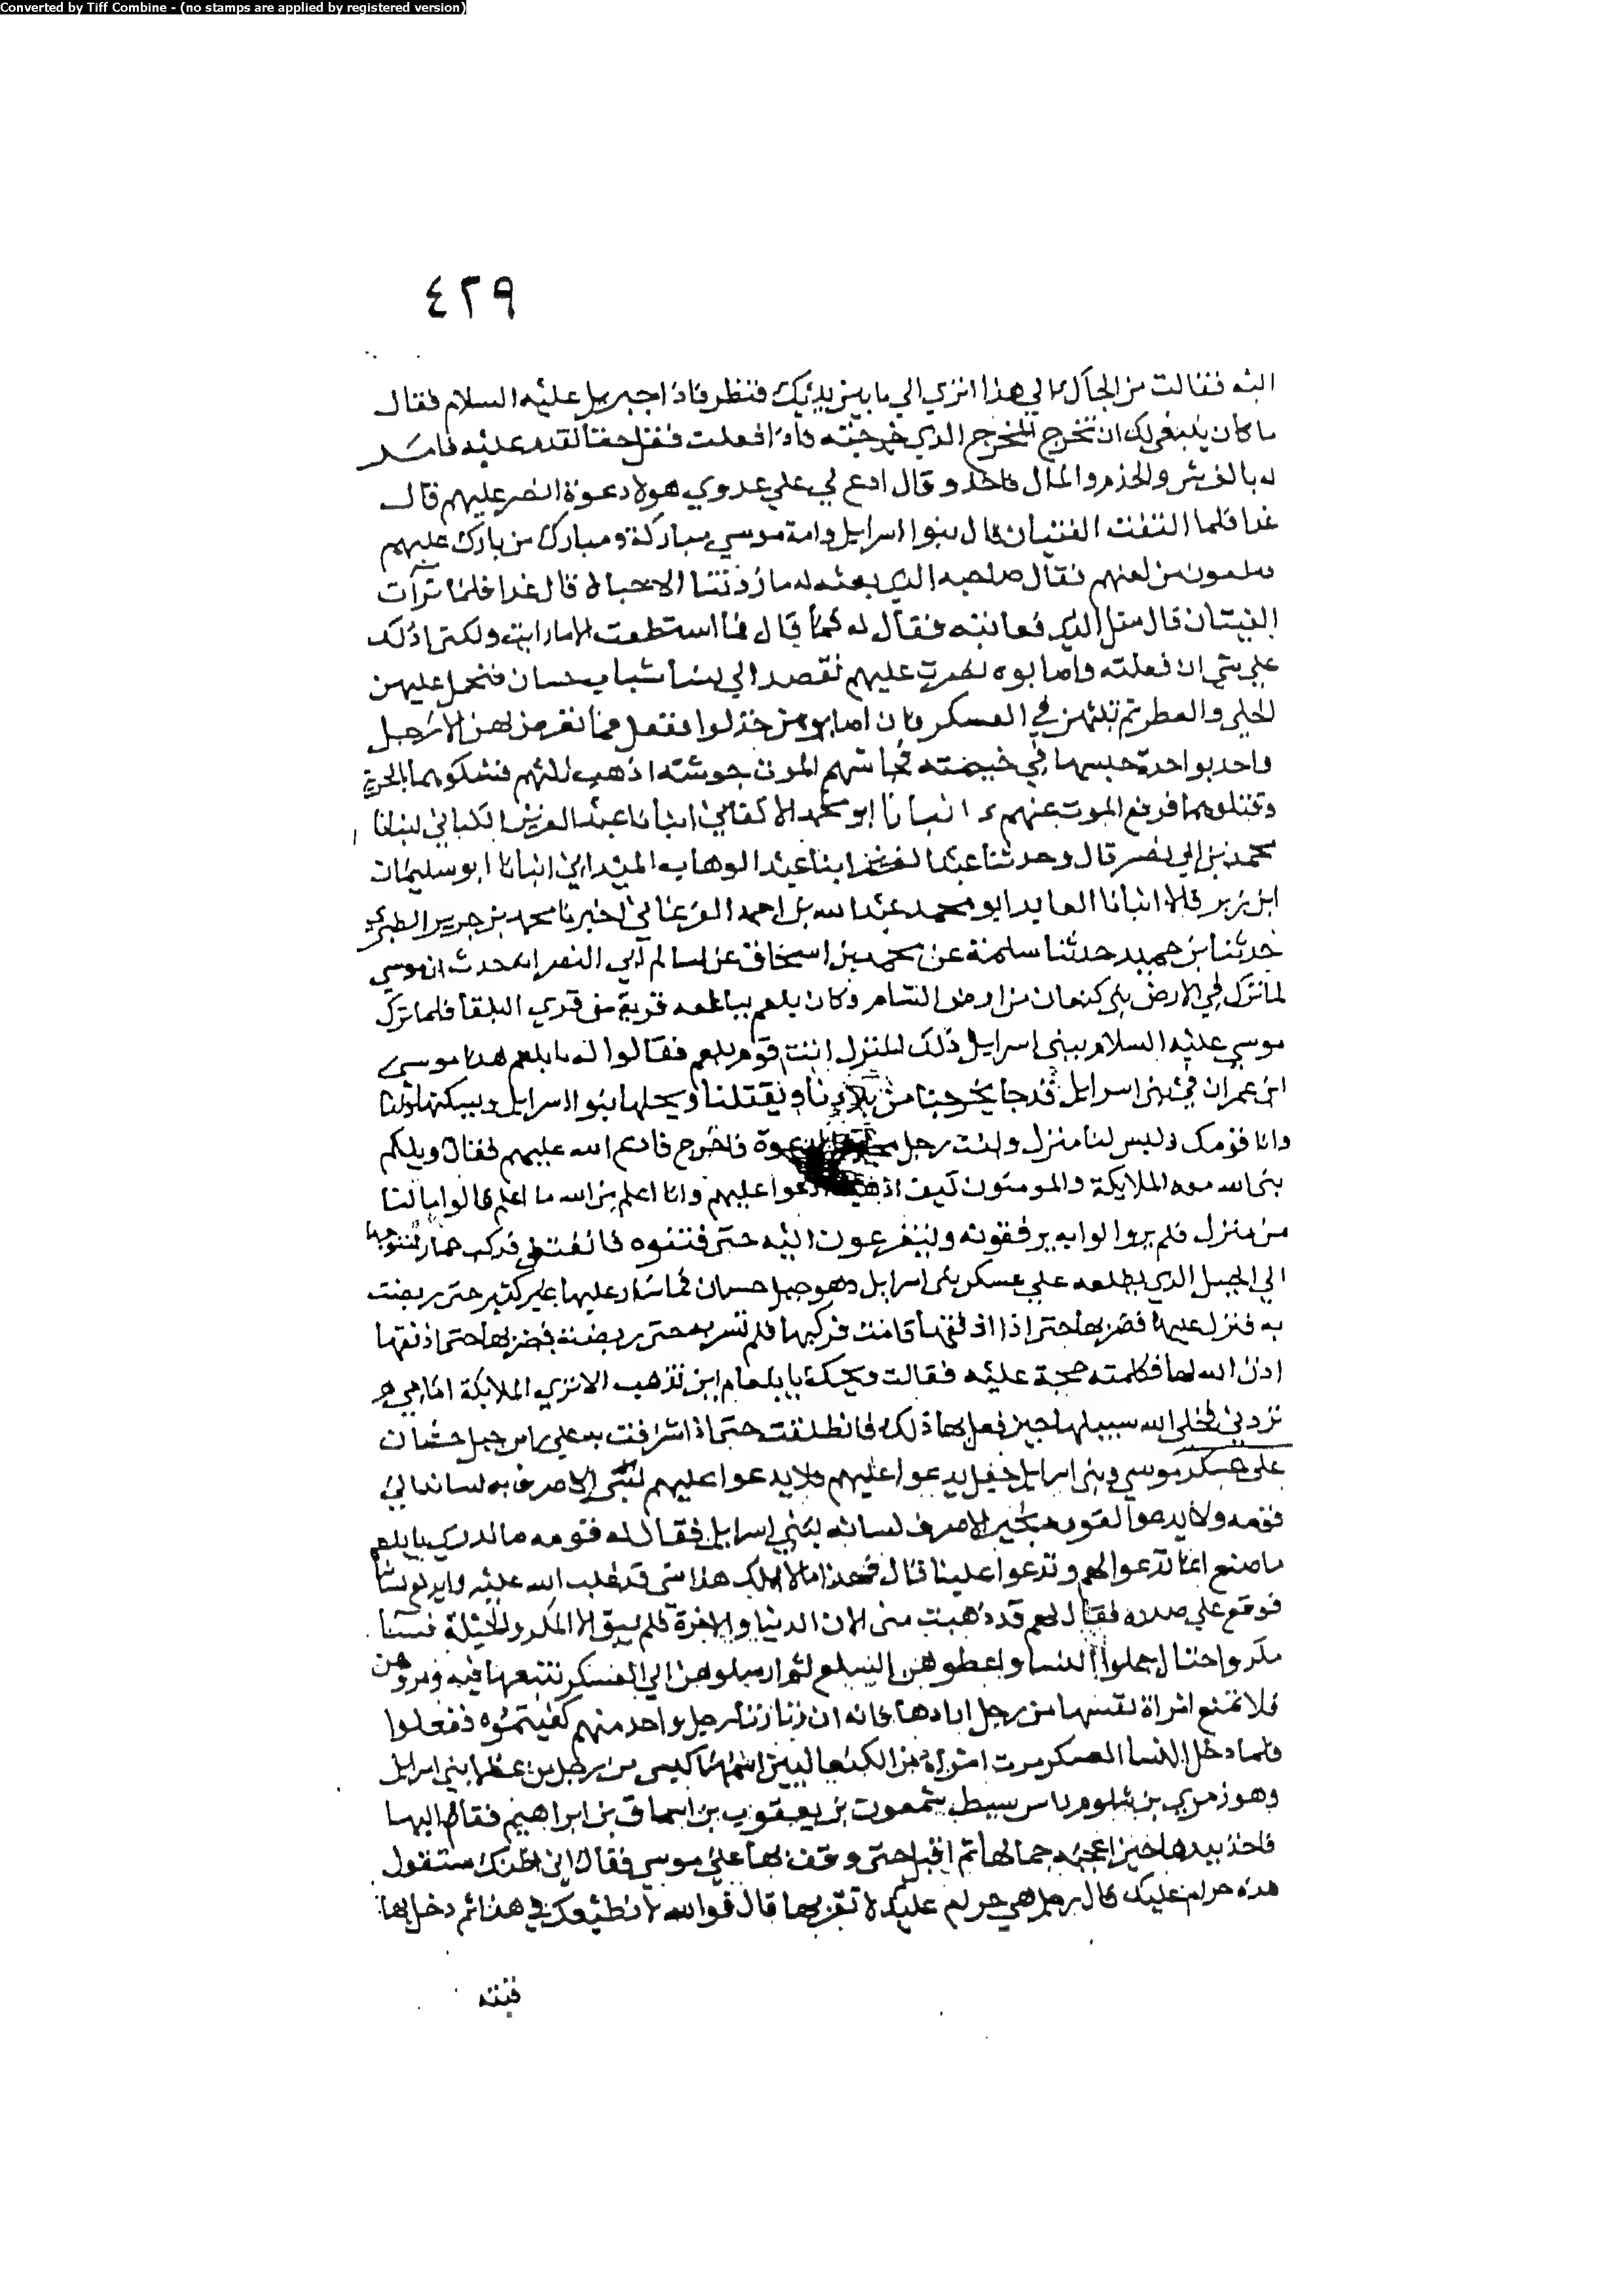 Converted by Tiff Combine - (no stamps are applied by registered version)
٤٢٩
فقالت من الجآك الي هذا اتري الي ما بين يديك فنظر فاذا جبريل عليه السلام فقال
ما كان ينبغي لك ان تخرج المخرج الذي خرجته فاذا فعلت فقل حقا عليه
والخدم والمال فاخذ وقال ادع لي علي عدوي هولا دعوة انصر عليهم قال
غدا فلما التفت الفتيان قال بنوا اسرايل وامة موسي مباركة ومبارك من بارك عليهم
ملعون من لعنهم فقال صاحبه الذي بعثه له ما زدتنا الا خبالا قال غدا فلما ترآت
الفيتان قال مثل الذي فعاتبه فقال له كما قال فما استطعت الا ما رايت ولكن اذلك
علي شي ان فعلته واصابوه نصرت عليهم تقصد الي نسا شباب حسان فتجمل عليهن
الحلي والعطر ثم تبثهن في العسكر فان اصابوهن خذلوا ففعل فما تعرض لهن الا رجل
واحد بواحدة حبسها في خيمته الموت اذهب اليهم فشكوهما
وقتلوهما فرفع الموت عنهم انبانا ابو محمد الاكفاني انبانا عبد العزيز الكتاني انبانا
محمد بن ابي نصر قال وحدثنا ابنا عبد الوهاب الميداني انبانا ابو سليمان
ابن زبر قالا انبانا ابو محمد عبد الله بن احمد الفرغاني اخبرنا محمد بن جرير الطبري
حدثنا بن حميد حدثنا سلمة عن محمد بن اسحاق عن سالم ابي النضر انه حدث ان موسي
لما نزل في الارض بني كنعان من ارض الشام وكان بلعم ببالعه قرية من قري البلقا فلما نزل
موسي عليه السلام ببني اسرايل ذلك المنزل اتت قوم بلعم فقالوا له يا بلعم هذا موسي
ابن عمران في بني اسرايل قد جا يخرجنا من بلادنا ويقتلنا ويحلها بنوا اسرايل ويسكنها
وانا قومك وليس لنا منزل وانت رجل مجاب الدعوة فاخرج فادع الله عليهم فقال ويلكم
نبي الله معه الملايكة والمومنون كيف اذهب ادعوا عليهم وانا اعلم من الله ما اعلم قالوا مالنا
من منزل فلم يزالوا به يرفقونه ويتضرعون اليه حتي فتنوه فافتتن فركب حمارا متوجها
الي الجبل الذي يطلعه علي عسكر بني اسرايل وهو جبل حسان فما سار عليها غير كثير حتي ربضت
به فنزل عنها فضربها حتي اذا اذلقها قامت فركبها فلم تسر به حتي ربضت فضربها حتي اذلقها
اذن الله لها فكلمته حجة عليه فقالت ويحك يا بلعام اين تذهب الا تري الملايكة امامي
تردني فخلي الله سبيلها حين فعل بها ذلك فانطلقت حتي اذا اشرفت به علي راس جبل حسان
علي عسكر موسي وبني اسرايل جعل يدعوا عليهم ولا يدعوا عليهم بشي الا صرف به لسانه الي
قومه ولا يدعوا لقومه بخير الا صرف لسانه لبني اسرايل فقال له قومه ما تدري يا بلعم
ما صنع انما تدعوا لهم وتدعوا علينا قال فهذا مالا املك هذا شي قد غلب الله عليه
فوقع علي صدره فقال لهم قد ذهبت مني الان الدنيا والاخرة فلم يبق الا المكر والحيلة
جملوا النسا واعطوهن السلع ثم ارسلوهن الي العسكر فيه ومروهن
فلا تمنع امراة نفسها من رجل ارادها فانه ان زنا رجل واحد منهم كفيتموه ففعلوا
فلما دخل النسا العسكر مرت امراة من الكنعانيين برجل من عظما بني اسرايل
وهو زمري بن شلوم راس سبط شمعون بن يعقوب بن اسحاق بن ابراهيم فقام اليها
فاخذ بيدها حين اعجبه جمالها ثم اقبل حتي وقف بها علي موسي فقال اني اظنك ستقول
هذه حرام عليك قال اجل هي حرام عليك لا تقربها قال فوالله لا نطيعك في هذا ثم دخل بها
قبته